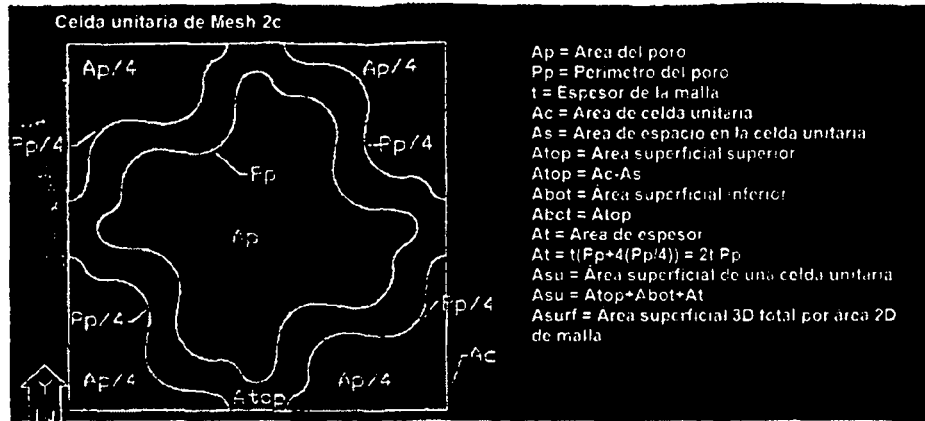 Celda unitaria de Mesh 2c
Ap/4
Ap/4
Pp/4
Pp/4
Pp
Ap
Pp/4
Pp/4
Ac
Ap/4
Ap/4
Atop
Y
Ap = Area del poro
Pp = Perimetro del poro
t = Espesor de la malla
Ac = Area de celda unitaria
As = Area de espacio en la celda unitaria
Atop = Area superficial superior
Atop = Ac-As
Abot = Área superficial inferior
Abot = Atop
At = Area de espesor
At = t(Pp+4(Pp/4)) = 2t Pp
Asu = Área superficial de una celda unitaria
Asu = Atop+Abot+At
Asurf = Area superficial 3D total por área 2D
de malla